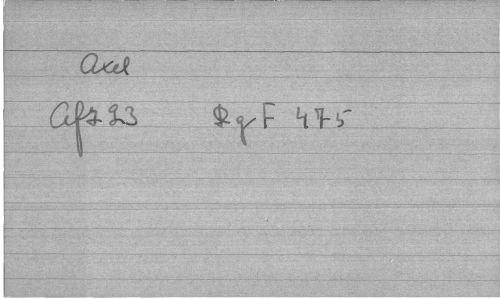 Axel
Afz 23 RgF 475